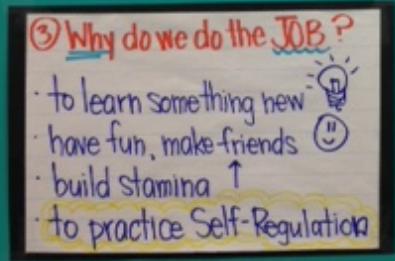 ③ Why do we do the JOB?
· to learn something new
· have fun, make friends
· build stamina ↑
· to practice Self-Regulation